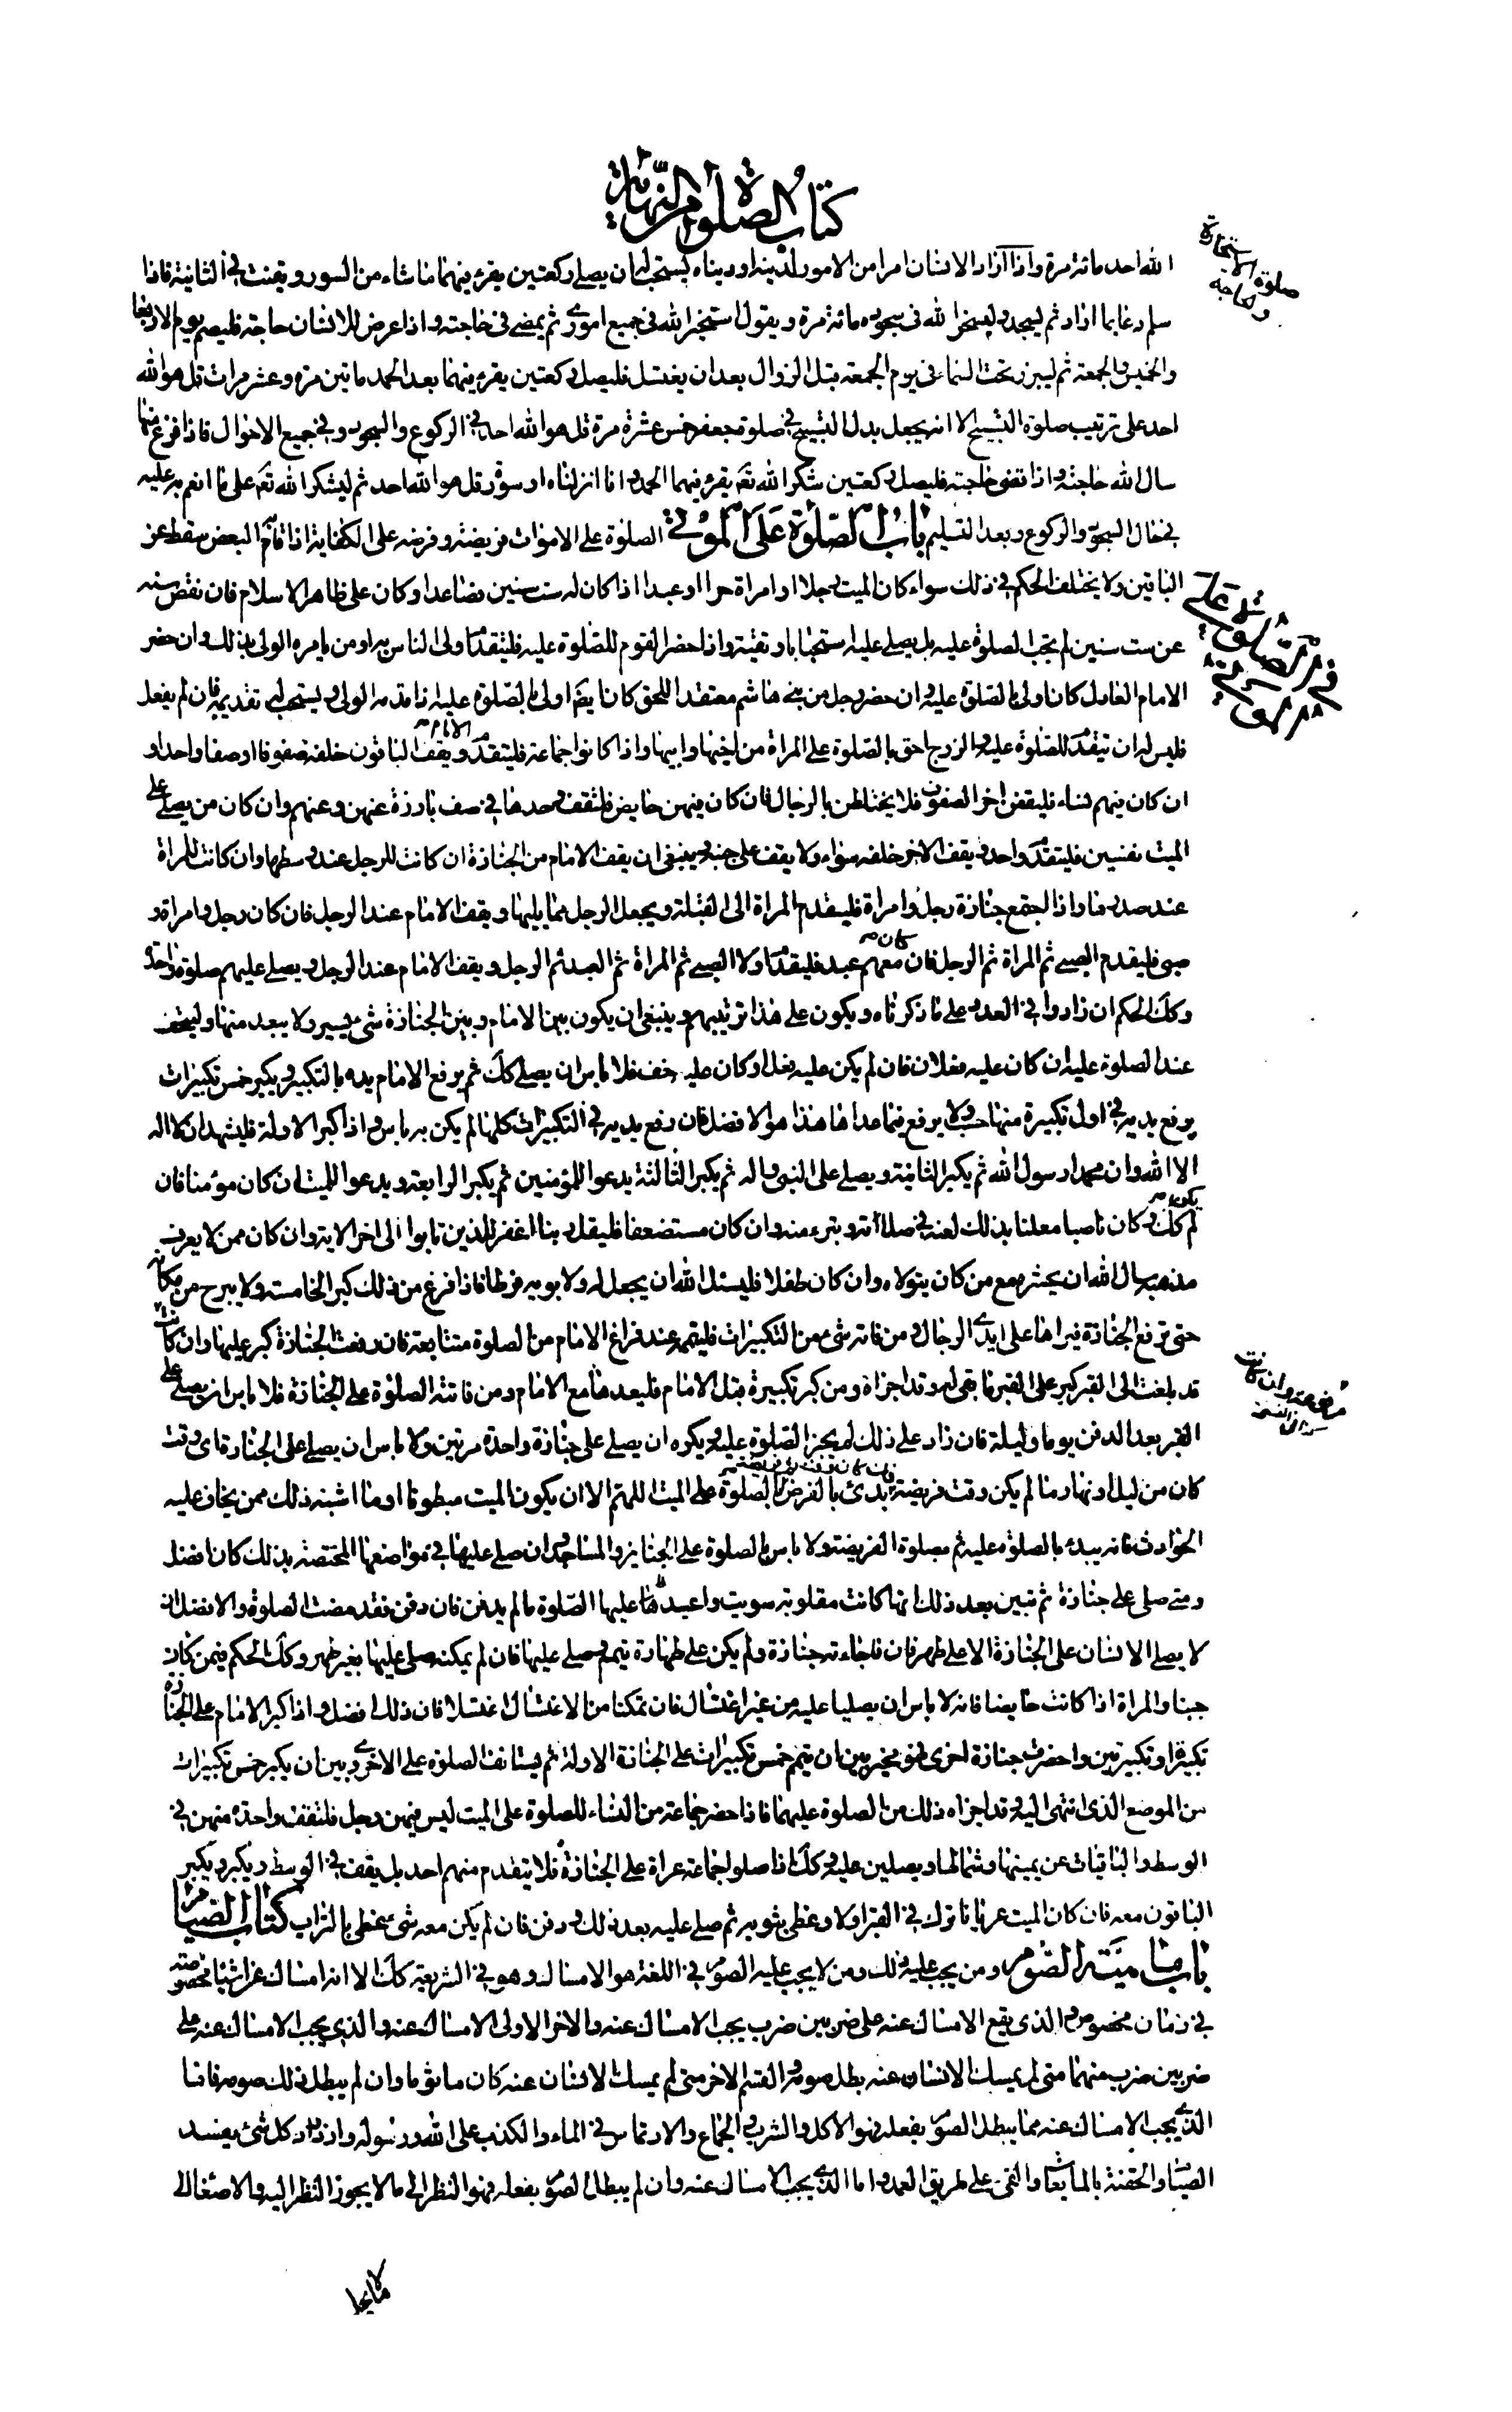 كتاب الصلوة من النهاية
صلوة الاستخارة
والحاجة
الله احد مائة مرة واذا اراد الانسان امرا من الامور لدينه او دنياه يستحب له ان يصلي ركعتين يقرء فيهما ما شاء من السور ويقنت في الثانية فاذا
سلم دعا بما اراد ثم ليسجد وليستخر الله في سجوده مائة مرة ويقول استخير الله في جميع اموري ثم يمضي في حاجته واذا عرض للانسان حاجة فليصم يوم الاربعا
والخميس والجمعة ثم ليبرز تحت السماء في يوم الجمعة قبل الزوال بعد ان يغتسل فليصل ركعتين يقرء فيهما بعد الحمد مائتين مرة وعشر مرات قل هو الله
احد على ترتيب صلوة التسبيح الا انه يجعل بدل التسبيح في صلوة جعفر خمس عشرة مرة قل هو الله احد في الركوع والسجود وفي جميع الاحوال فاذا فرغ منها
سال الله حاجته واذا قضى حاجته فليصل ركعتين شكرا لله تع يقرء فيهما الحمد وانا انزلناه او سورة قل هو الله احد ثم ليشكر الله تع على ما انعم به عليه
في حال السجود والركوع وبعد التسليم باب الصلوة على الموتى الصلوة على الاموات فريضة وفرضه على الكفاية اذا قام البعض سقط عن
الباقين ولا يختلف الحكم في ذلك سواء كان الميت رجلا او امراة حرا او عبدا اذا كان له ست سنين فصاعدا وكان على ظاهر الاسلام فان نقص سنه
في الصلوة على
الموتى
عن ست سنين لم يجب الصلوة عليه بل يصلي عليه استحبابا وتقية واذا حضر القوم للصلوة عليه فليتقدم اولى الناس به او من يامره الولي بذلك وان حضر
الامام العادل كان اولى بالصلوة عليه وان حضر رجل من بني هاشم معتقد للحق كان ايضا اولى بالصلوة عليه اذا قدمه الولي ويستحب له تقديمه فان لم يفعل
فليس له ان يتقدم للصلوة عليه والزوج احق بالصلوة على المراة من اخيها وابيها واذا كانوا جماعة فليتقدم الامام ويقف الباقون خلفه صفوفا او صفا واحدا و
ان كان فيهم نساء فليقفن اخر الصفوف فلا يختلطن بالرجال فان كان فيهن حايض فلتقف وحدها في صف بارزة عنهن وعنهم وان كان من يصلي على
الميت نفسين فليتقدم واحد ويقف الاخر خلفه سواء ولا يقف على جنبه وينبغي ان يقف الامام من الجنازة ان كانت للرجل عند وسطها وان كانت للمراة
عند صدرها واذا اجتمع جنازة رجل وامراة فليقدم المراة الى القبلة ويجعل الرجل مما يليها ويقف الامام عند الرجل فان كان رجل وامراة و
صبي فليقدم الصبي ثم المراة ثم الرجل فان كان معهم عبد فليقدم اولا الصبي ثم المراة ثم العبد ثم الرجل ويقف الامام عند الرجل ويصلي عليهم صلوة واحدة
وكك الحكم ان زادوا في العدد على ما ذكرناه ويكون على هذا ترتيبهم وينبغي ان يكون بين الامام وبين الجنازة شئ يسير ولا يبعد منها وليتحف
عند الصلوة عليه ان كان عليه نعلان فان لم يكن عليه نعل او كان عليه خف فلا باس ان يصلي كك ثم يرفع الامام يده بالتكبير ويكبر خمس تكبيرات
يرفع يديه في اول تكبيرة منها حسب ولا يرفع فيما عداها هذا هو الافضل فان رفع يديه في التكبيرات كلها لم يكن به باس واذا كبر الاولة فليشهد ان لا اله
الا الله وان محمدا رسول الله ثم يكبر الثانية ويصلي على النبي واله ثم يكبر الثالثة يدعو للمؤمنين ثم يكبر الرابعة ويدعو للميت ان كان مؤمنا فان
لم يكن كك وكان ناصبا معلنا بذلك لعنه في صلاته وتبرء منه وان كان مستضعفا فليقل ربنا اغفر للذين تابوا الى اخر الاية وان كان ممن لا يعرف
مذهبه سال الله ان يحشره مع من كان يتولاه وان كان طفلا فليسئل الله ان يجعل له ولابويه فرطا فاذا فرغ من ذلك كبر الخامسة ولا يبرح من مكانه
حتى ترفع الجنازة فيراها على ايدي الرجال ومن فاته شئ من التكبيرات فليتمه عند فراغ الامام من الصلوة متتابعة فان رفعت الجنازة كبر عليها وان كانت
قد بلغت الى القبر كبر على القبر ما بقي له وقد اجزاه ومن كبر تكبيرة قبل الامام فليعدها مع الامام ومن فاتته الصلوة على الجنازة فلا باس ان يصلي على
القبر بعد الدفن يوما وليلة فان زاد على ذلك لم يجز الصلوة عليه ويكره ان يصلي على جنازة واحدة مرتين ولا باس ان يصلي على الجنازة اي وقت
كان من ليل او نهار ما لم يكن وقت فريضة بدئ بالفرض ثم بالصلوة على الميت اللهم الا ان يكون الميت مبطونا او ما اشبه ذلك ممن يخاف عليه
الحوادث فانه يبدء بالصلوة عليه ثم بصلوة الفريضة ولا باس بالصلوة على الجنايز في المساجد وان صلي عليها في مواضعها المختصة بذلك كان افضل
ومتى صلي على جنازة ثم تبين بعد ذلك انها كانت مقلوبة سويت واعيد عليها الصلوة ما لم يدفن فان دفن فقد مضت الصلوة والافضل ان
لا يصلي الانسان على الجنازة الا على طهر فان فاجاءته جنازة ولم يكن على طهارة تيمم وصلى عليها فان لم يمكنه صلى عليها بغير طهر وكك الحكم فيمن كان
جنبا والمراة اذا كانت حايضا فانه لا باس ان يصليا عليه من غير اغتسال فان تمكنا من الاغتسال اغتسلا فان ذلك افضل واذا كبر الامام على الجنازة
تكبيرة او تكبيرتين واحضرت جنازة اخرى فهو مخير بين ان يتم خمس تكبيرات على الجنازة الاولة ثم يستانف الصلوة على الاخرى وبين ان يكبر خمس تكبيرات
من الموضع الذي انتهى اليه وقد اجزاه ذلك من الصلوة عليهما فاذا حضر جماعة من النساء للصلوة على الميت ليس فيهن رجل فلتقف واحدة منهن في
الوسط والباقيات عن يمينها وشمالها ويصلين عليه وكك اذا صلوا جماعة عراة على الجنازة فلا يتقدم منهم احد بل يقف في الوسط ويكبر ويكبر
الباقون معه فان كان الميت عريانا ترك في القبر اولا وغطي بثوبه ثم صلي عليه بعد ذلك ودفن فان لم يكن معه شئ غطي بالتراب كتاب الصيام
باب ما مية الصوم ومن يجب عليه ذلك ومن لا يجب عليه الصوم في اللغة هو الامساك وهو في الشريعة كك الا انه امساك عن اشياء مخصوصة
في زمان مخصوص والذي يقع الامساك عنه على ضربين ضرب يجب الامساك عنه والاخر الاولى الامساك عنه والذي يجب الامساك عنه على
ضربين ضرب منهما متى لم يمسك الانسان عنه بطل صومه والقسم الاخر متى لم يمسك الانسان عنه كان ماثوما وان لم يبطل ذلك صومه فاما
الذي يجب الامساك عنه مما يبطل الصوم بفعله فهو الاكل والشرب والجماع والارتماس في الماء والكذب على الله ورسوله وازدراد كل شئ يفسد
الصيام والحقنة بالمايعات والقئ على طريق العمد واما الذي يجب الامساك عنه وان لم يبطل الصوم بفعله فهو النظر الى ما لا يجوز النظر اليه والاصغاء الى